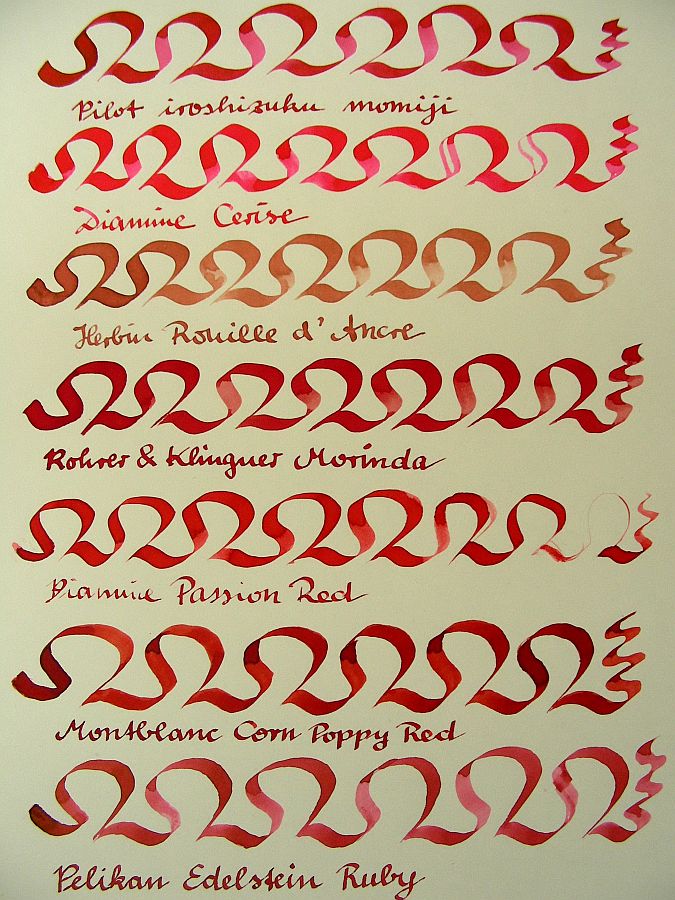 Pilot iroshizuku momiji
Diamine Cerise
Herbin Rouille d'Ancre
Rohrer & Klingner Morinda
Diamine Passion Red
Montblanc Corn Poppy Red
Pelikan Edelstein Ruby